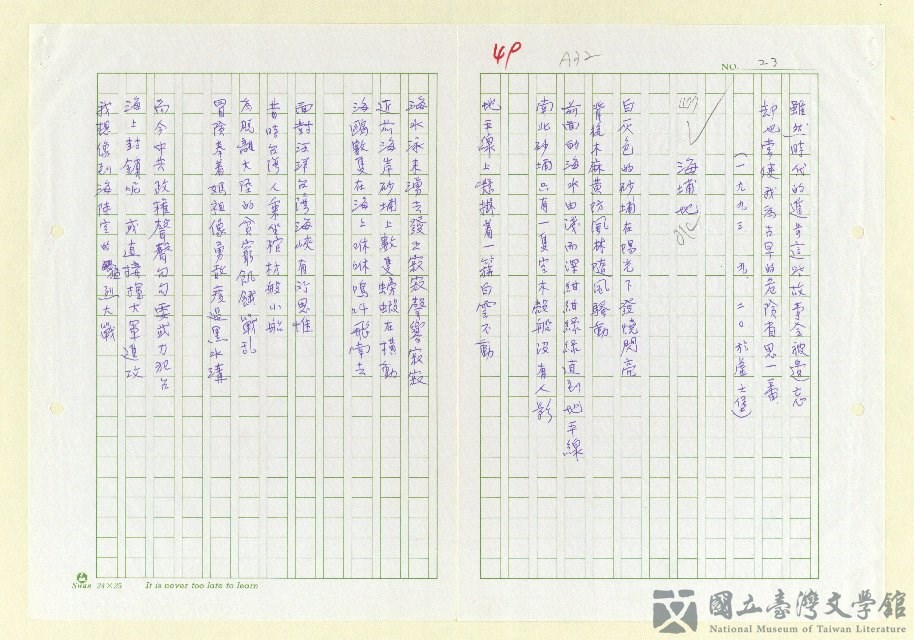 4P
A32
NO. 23
雖然時代的進步這些故事全被遺忘
却也常使我為古早的危險省思一番
(一九九三、九、二〇於蘆士堡)
海埔地
白灰色的砂埔在陽光下發燒閃亮
背後木麻黄防風林隨風騷動
前面的海水由淺而深紺紺綠綠直到地平線
南北砂埔只有一隻空木殼船没有人影
地平線上懸掛着一簇白雲不動
海水泳来湧去發出寂寂聲響寂寂
近前海岸砂埔上數隻螃蟹在横動
海鷗數隻在海上咻咻鳴叫飛南去
面對汪洋台湾海峽有所思惟
昔時台湾人乘坐棺材般小船
為脱離大陸的貧窮飢餓戰乱
冒險奉着媽祖像勇敢渡過黑水溝
而今中共政權聲聲句句要武力犯台
海上封鎖呢 或直接擁大軍進攻
我想像到海陸空的 烈大戰
Swan 24×25 It is never too late to learn
國立臺灣文學館
National Museum of Taiwan Literature